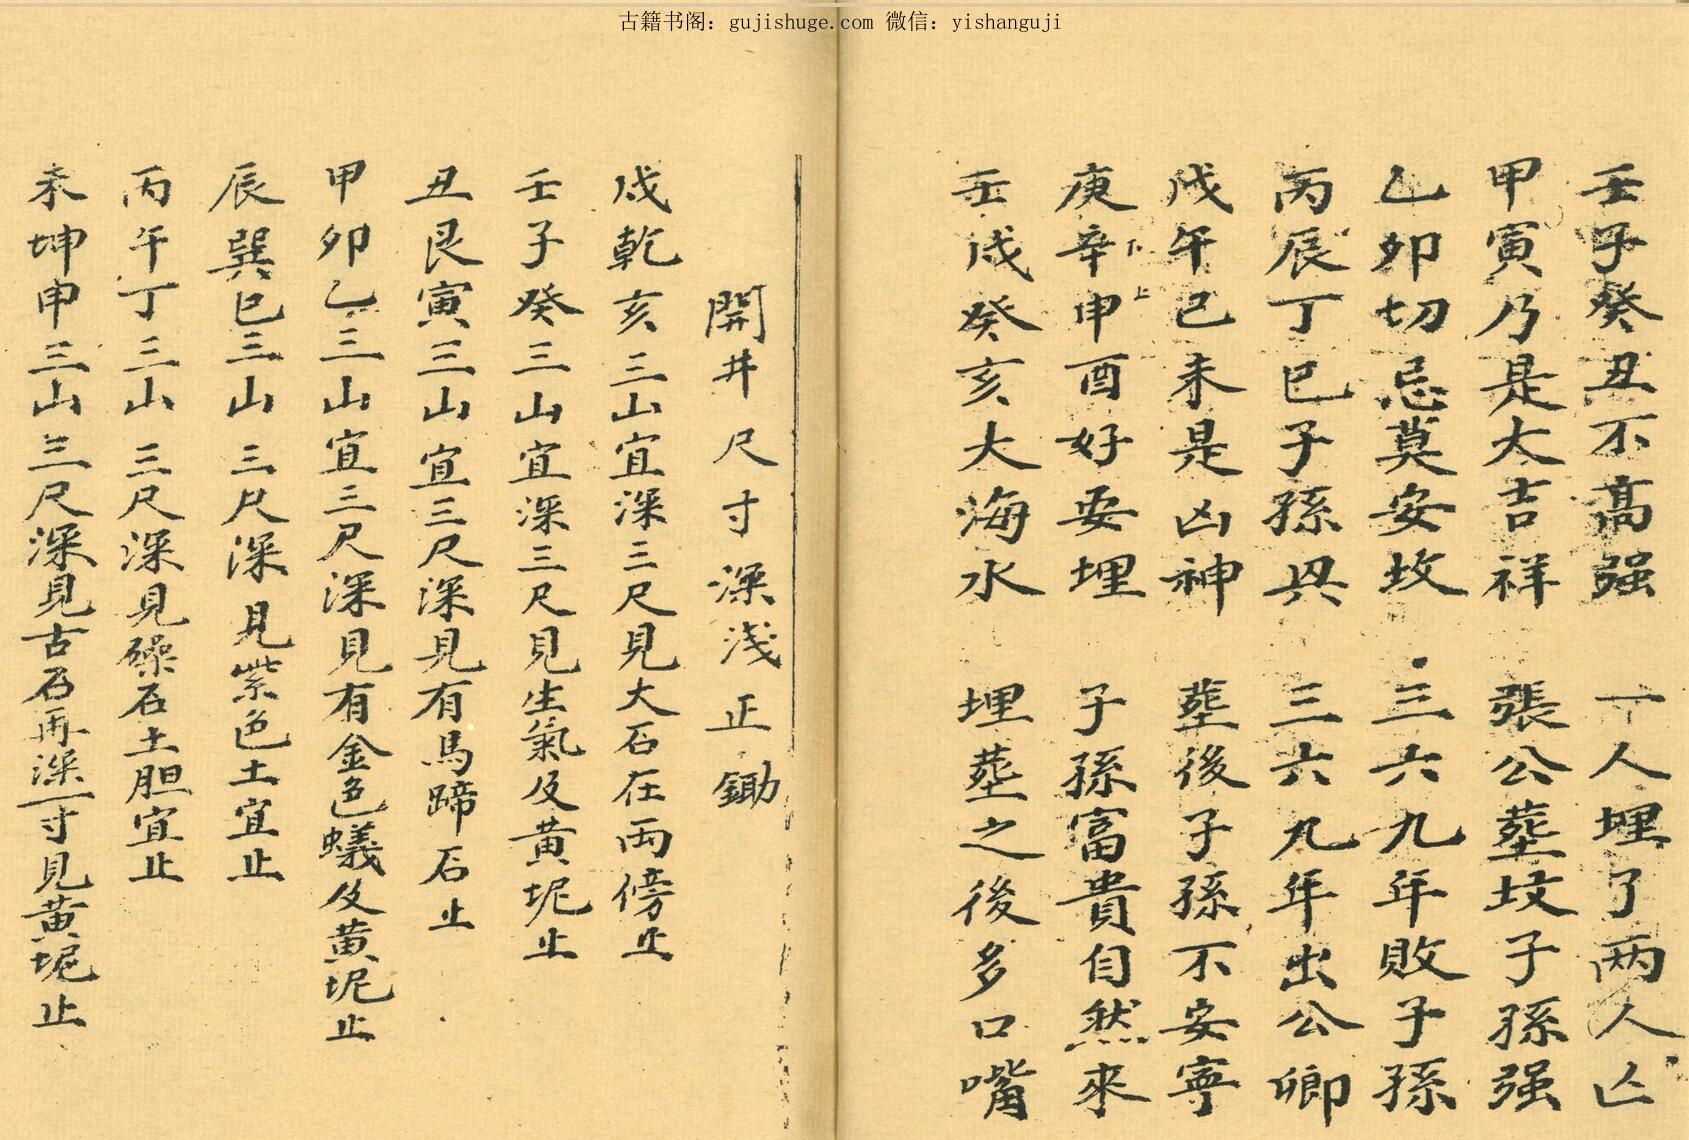 古籍书阁：gujishuge.com 微信：yishanguji
壬子癸丑不高强 一人埋了两人亡
甲寅乃是大吉祥 張公塟坟子孫强
乙卯切忌莫安坟 三六九年敗子孫
丙辰丁巳子孫兴 三六九年出公卿
戊午己未是凶神 塟後子孫不安寧
庚辛申酉好安埋 子孫富貴自然來
下
上
壬戌癸亥大海水 埋塟之後多口嘴
開井尺寸深浅正鋤
戌乾亥三山宜深三尺見大石在两傍止
壬子癸三山宜深三尺見生氣及黄坭止
丑艮寅三山宜三尺深見有馬蹄石止
甲卯乙三山宜三尺深見有金色蟻及黄坭止
辰巽巳三山三尺深見紫色土宜止
丙午丁三山三尺深見磉石土胆宜止
未坤申三山三尺深見古石再深一寸見黄坭止